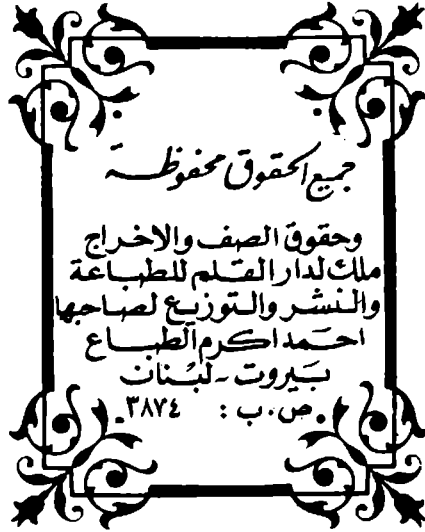 جميع الحقوق محفوظة
وحقوق الصف والاخراج
ملك لدار القلم للطباعة
والنشر والتوزيع لصاحبها
احمد اكرم الطباع
بيروت - لبنان
ص.ب : ٣٨٧٤